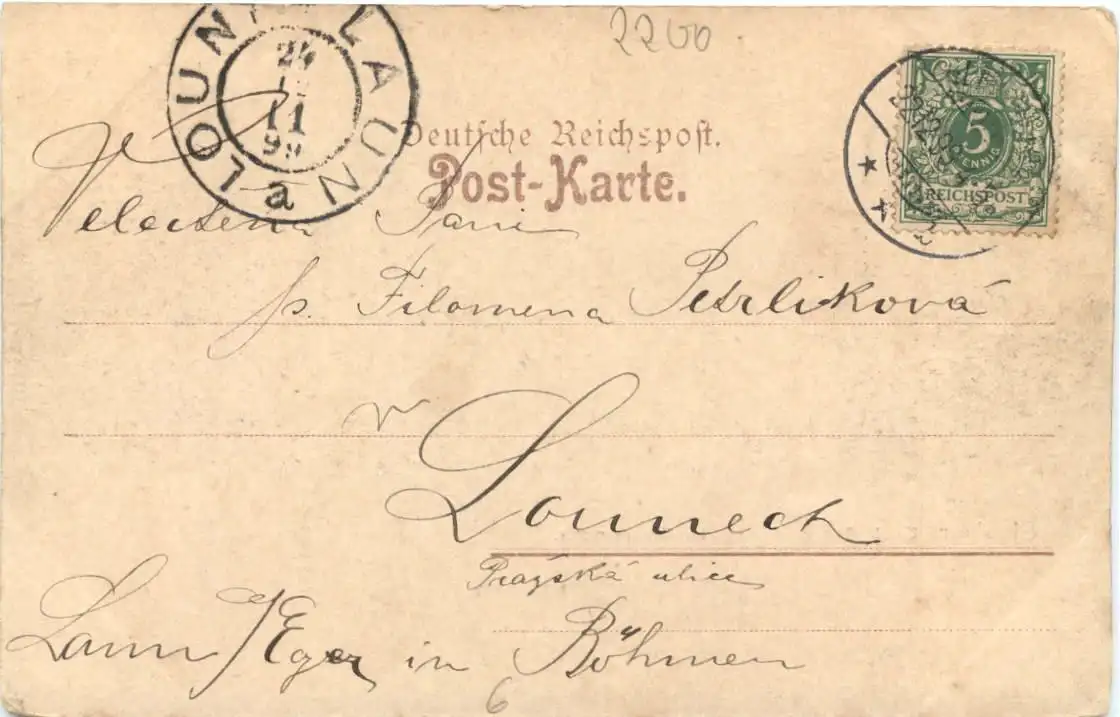 2200
LOUNY LAUN
24
11
99
a
Deutsche Reichspost.
Post-Karte.
5
PFENNIG
REICHSPOST
Velectená Paní
p. Filomena Petrliková
v Lounech
Pražská ulice
Laun a/Eger in Böhmen
6